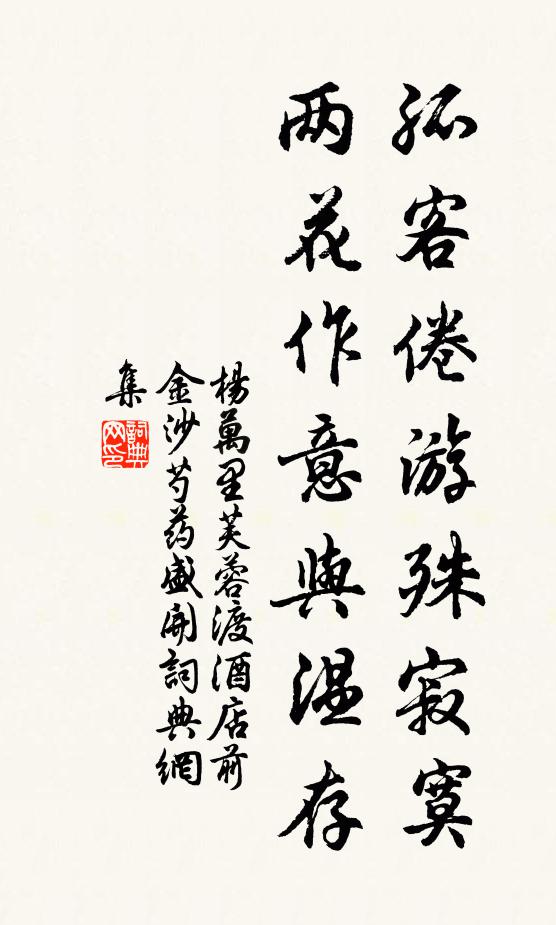 孤客倦游殊寂寞
两花作意與温存
楊萬里芙蓉渡酒店前
金沙芍药盛開詞典網
集
詞典
网印